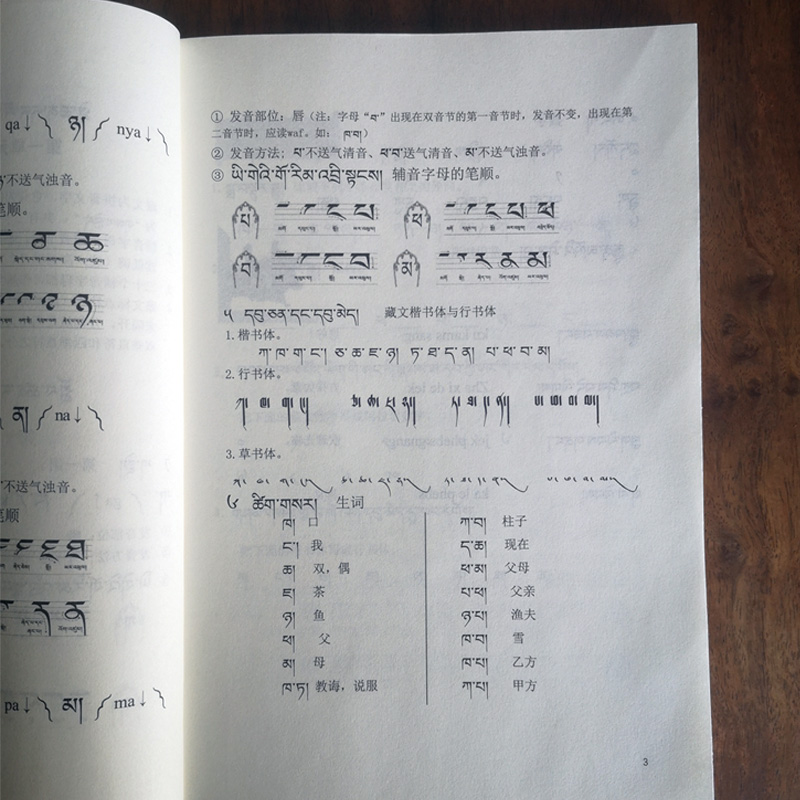 qa↓ ཉ། nya↓
不送气浊音。
笔顺。
ན། na↓
不送气浊音。
笔顺
pa↓ མ། ma↓
① 发音部位：唇（注：字母“བ་”出现在双音节的第一音节时，发音不变，出现在第
二音节时，应读waf。如： ཁ་བ།）
② 发音方法；པ་不送气清音、ཕ་བ་送气清音、མ་不送气浊音。
③ ཡི་གེའི་གོ་རིམ་འབྲི་སྟངས། 辅音字母的笔顺。
པ ཕ
བ མ
༥ དབུ་ཅན་དང་དབུ་མེད། 藏文楷书体与行书体
1.楷书体。
ཀ་ཁ་ག་ང་། ཅ་ཆ་ཇ་ཉ། ཏ་ཐ་ད་ན། པ་ཕ་བ་མ།
2.行书体。
ཀ། ཁ། ག། ང།། ཅ། ཆ། ཇ། ཉ།། ཏ། ཐ། ད། ན།། པ། ཕ། བ། མ།།
3.草书体。
༦ ཚིག་གསར། 生词
ཁ། 口
ང་། 我
ཆ། 双，偶
ཇ། 茶
ཉ། 鱼
ཕ། 父
མ། 母
ཁ་ཏ། 教诲，说服
ཀ་བ། 柱子
ད་ཆ། 现在
ཕ་མ། 父母
པ་ཕ། 父亲
ཉ་པ། 渔夫
ཁ་བ། 雪
ཁ་པ། 乙方
ཀ་པ། 甲方
3